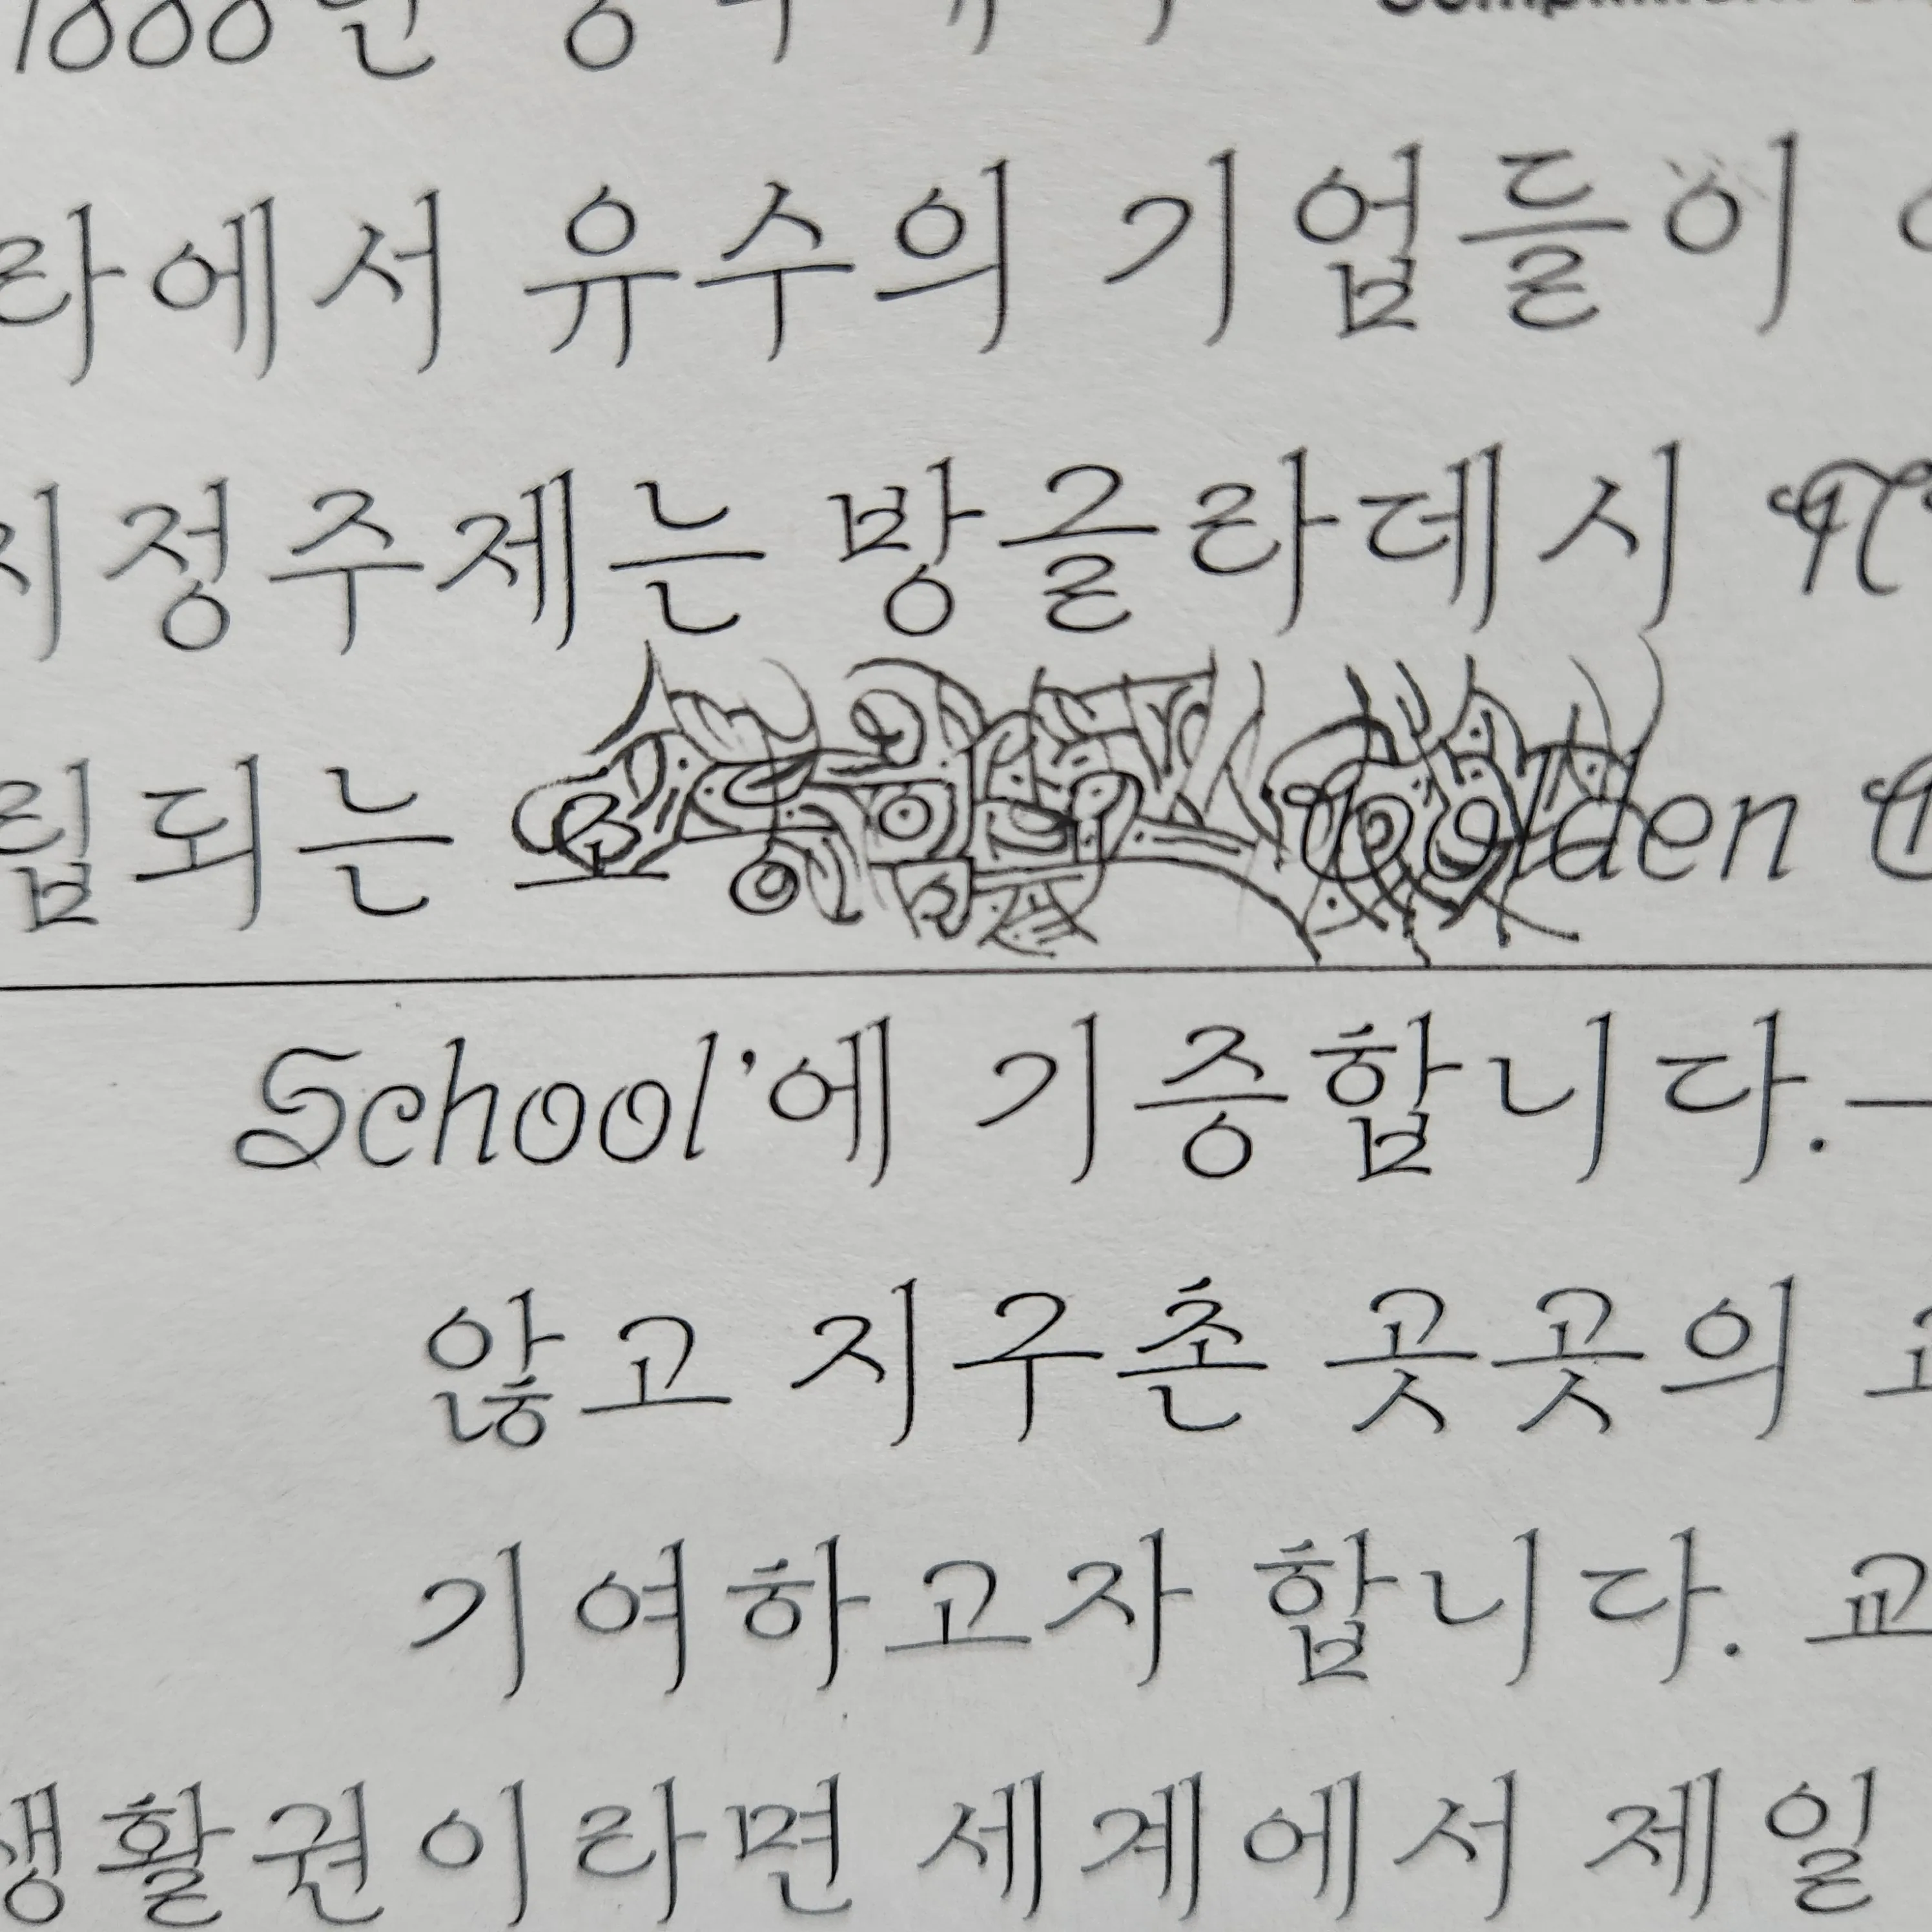 1000
라에서 유수의 기업들이
지정주제는 방글라데시
립되는 Golden
School'에 기증합니다.
않고 지구촌 곳곳의
기여하고자 합니다. 교
생활권이라면 세계에서 제일